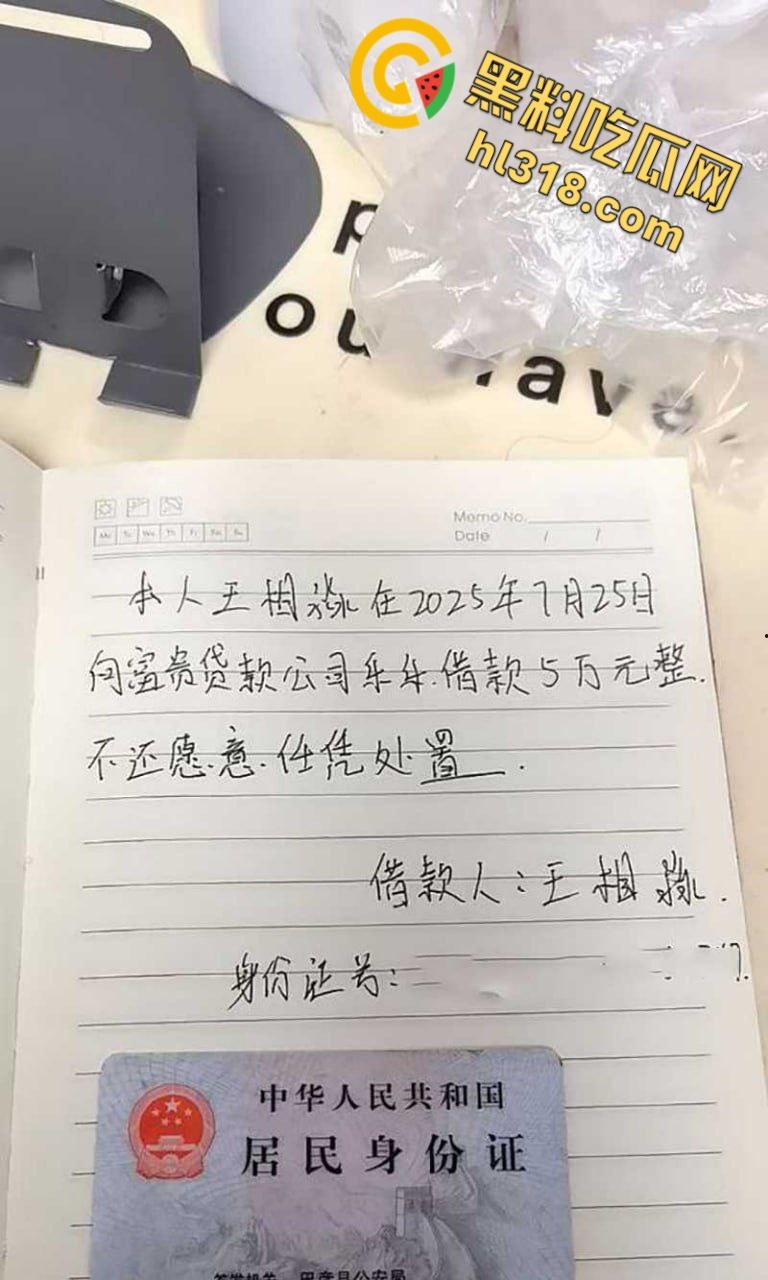 黑料吃瓜网
hl318.com
p
ou
rave.
Mo Tu We Th Fr Sa Su
Memo No.
Date / /
本人王相淼在2025年7月25日
向富贵贷款公司乐乐借款5万元整.
不还愿意任凭处置.
借款人:王相淼.
身份证号:
中华人民共和国
居民身份证